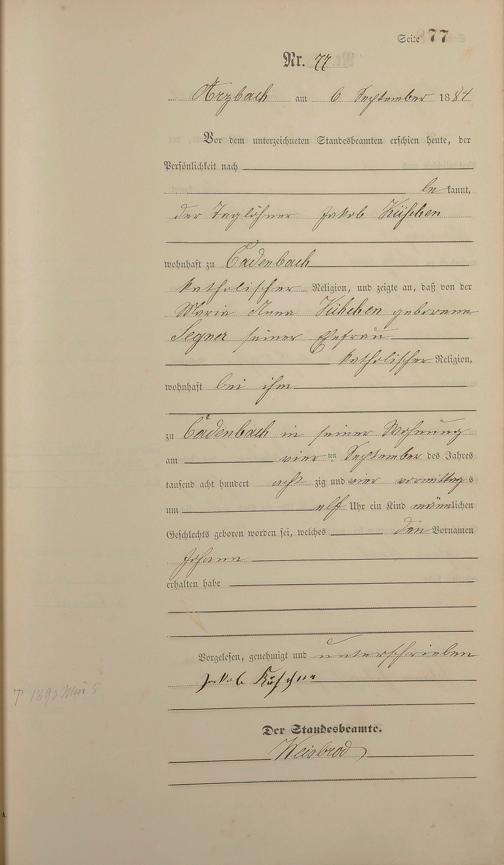 Seite 77
Nr. 77
Arzbach am 6. September 1884
Vor dem unterzeichneten Standesbeamten erschien heute, der
Persönlichkeit nach
bekannt,
der Taglöhner Jakob
wohnhaft zu Cadenbach
katholischer Religion, und zeigte an, daß von der
Maria Anna geborene
seiner Ehefrau
katholischer Religion,
wohnhaft bei ihm
zu Cadenbach in seiner Wohnung
am vierten September des Jahres
tausend acht hundert achtzig und vier vormittags
um elf Uhr ein Kind männlichen
Geschlechts geboren worden sei, welches den Vornamen
Johann
erhalten habe
Vorgelesen, genehmigt und unterschrieben
Jakob
† 1890 5
Der Standesbeamte.
Weisbrod